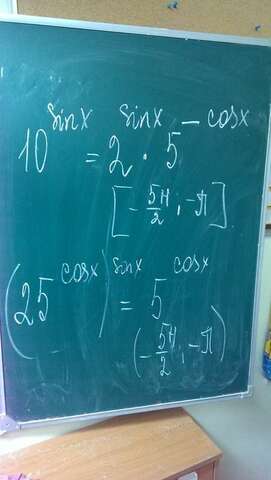 10^{sinx} = 2^{sinx} · 5^{-cosx}
[-\frac{5π}{2}; -π]
(25^{cosx})^{sinx} = 5^{cosx}
(-\frac{5π}{2}; -π)